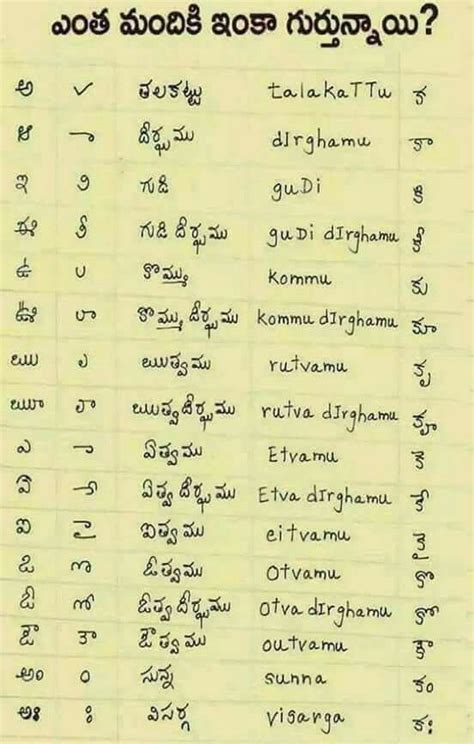 ఎంత మందికి ఇంకా గుర్తున్నాయి?
అ ✓ తలకట్టు talakaTTu క
ఆ ా దీర్ఘము dIrghamu కా
ఇ ి గుడి guDi కి
ఈ ీ గుడి దీర్ఘము guDi dIrghamu కీ
ఉ ు కొమ్ము kommu కు
ఊ ూ కొమ్ము దీర్ఘము kommu dIrghamu కూ
ఋ ృ ఋత్వము rutvamu కృ
ౠ ౄ ఋత్వ దీర్ఘము rutva dIrghamu కౄ
ఎ ె ఏత్వము Etvamu కె
ఏ ే ఏత్వ దీర్ఘము Etva dIrghamu కే
ఐ ై ఐత్వము eitvamu కై
ఒ ొ ఓత్వము Otvamu కొ
ఓ ో ఓత్వ దీర్ఘము Otva dIrghamu కో
ఔ ౌ ఔత్వము outvamu కౌ
అం ం సున్న sunna కం
అః ః విసర్గ visarga కః